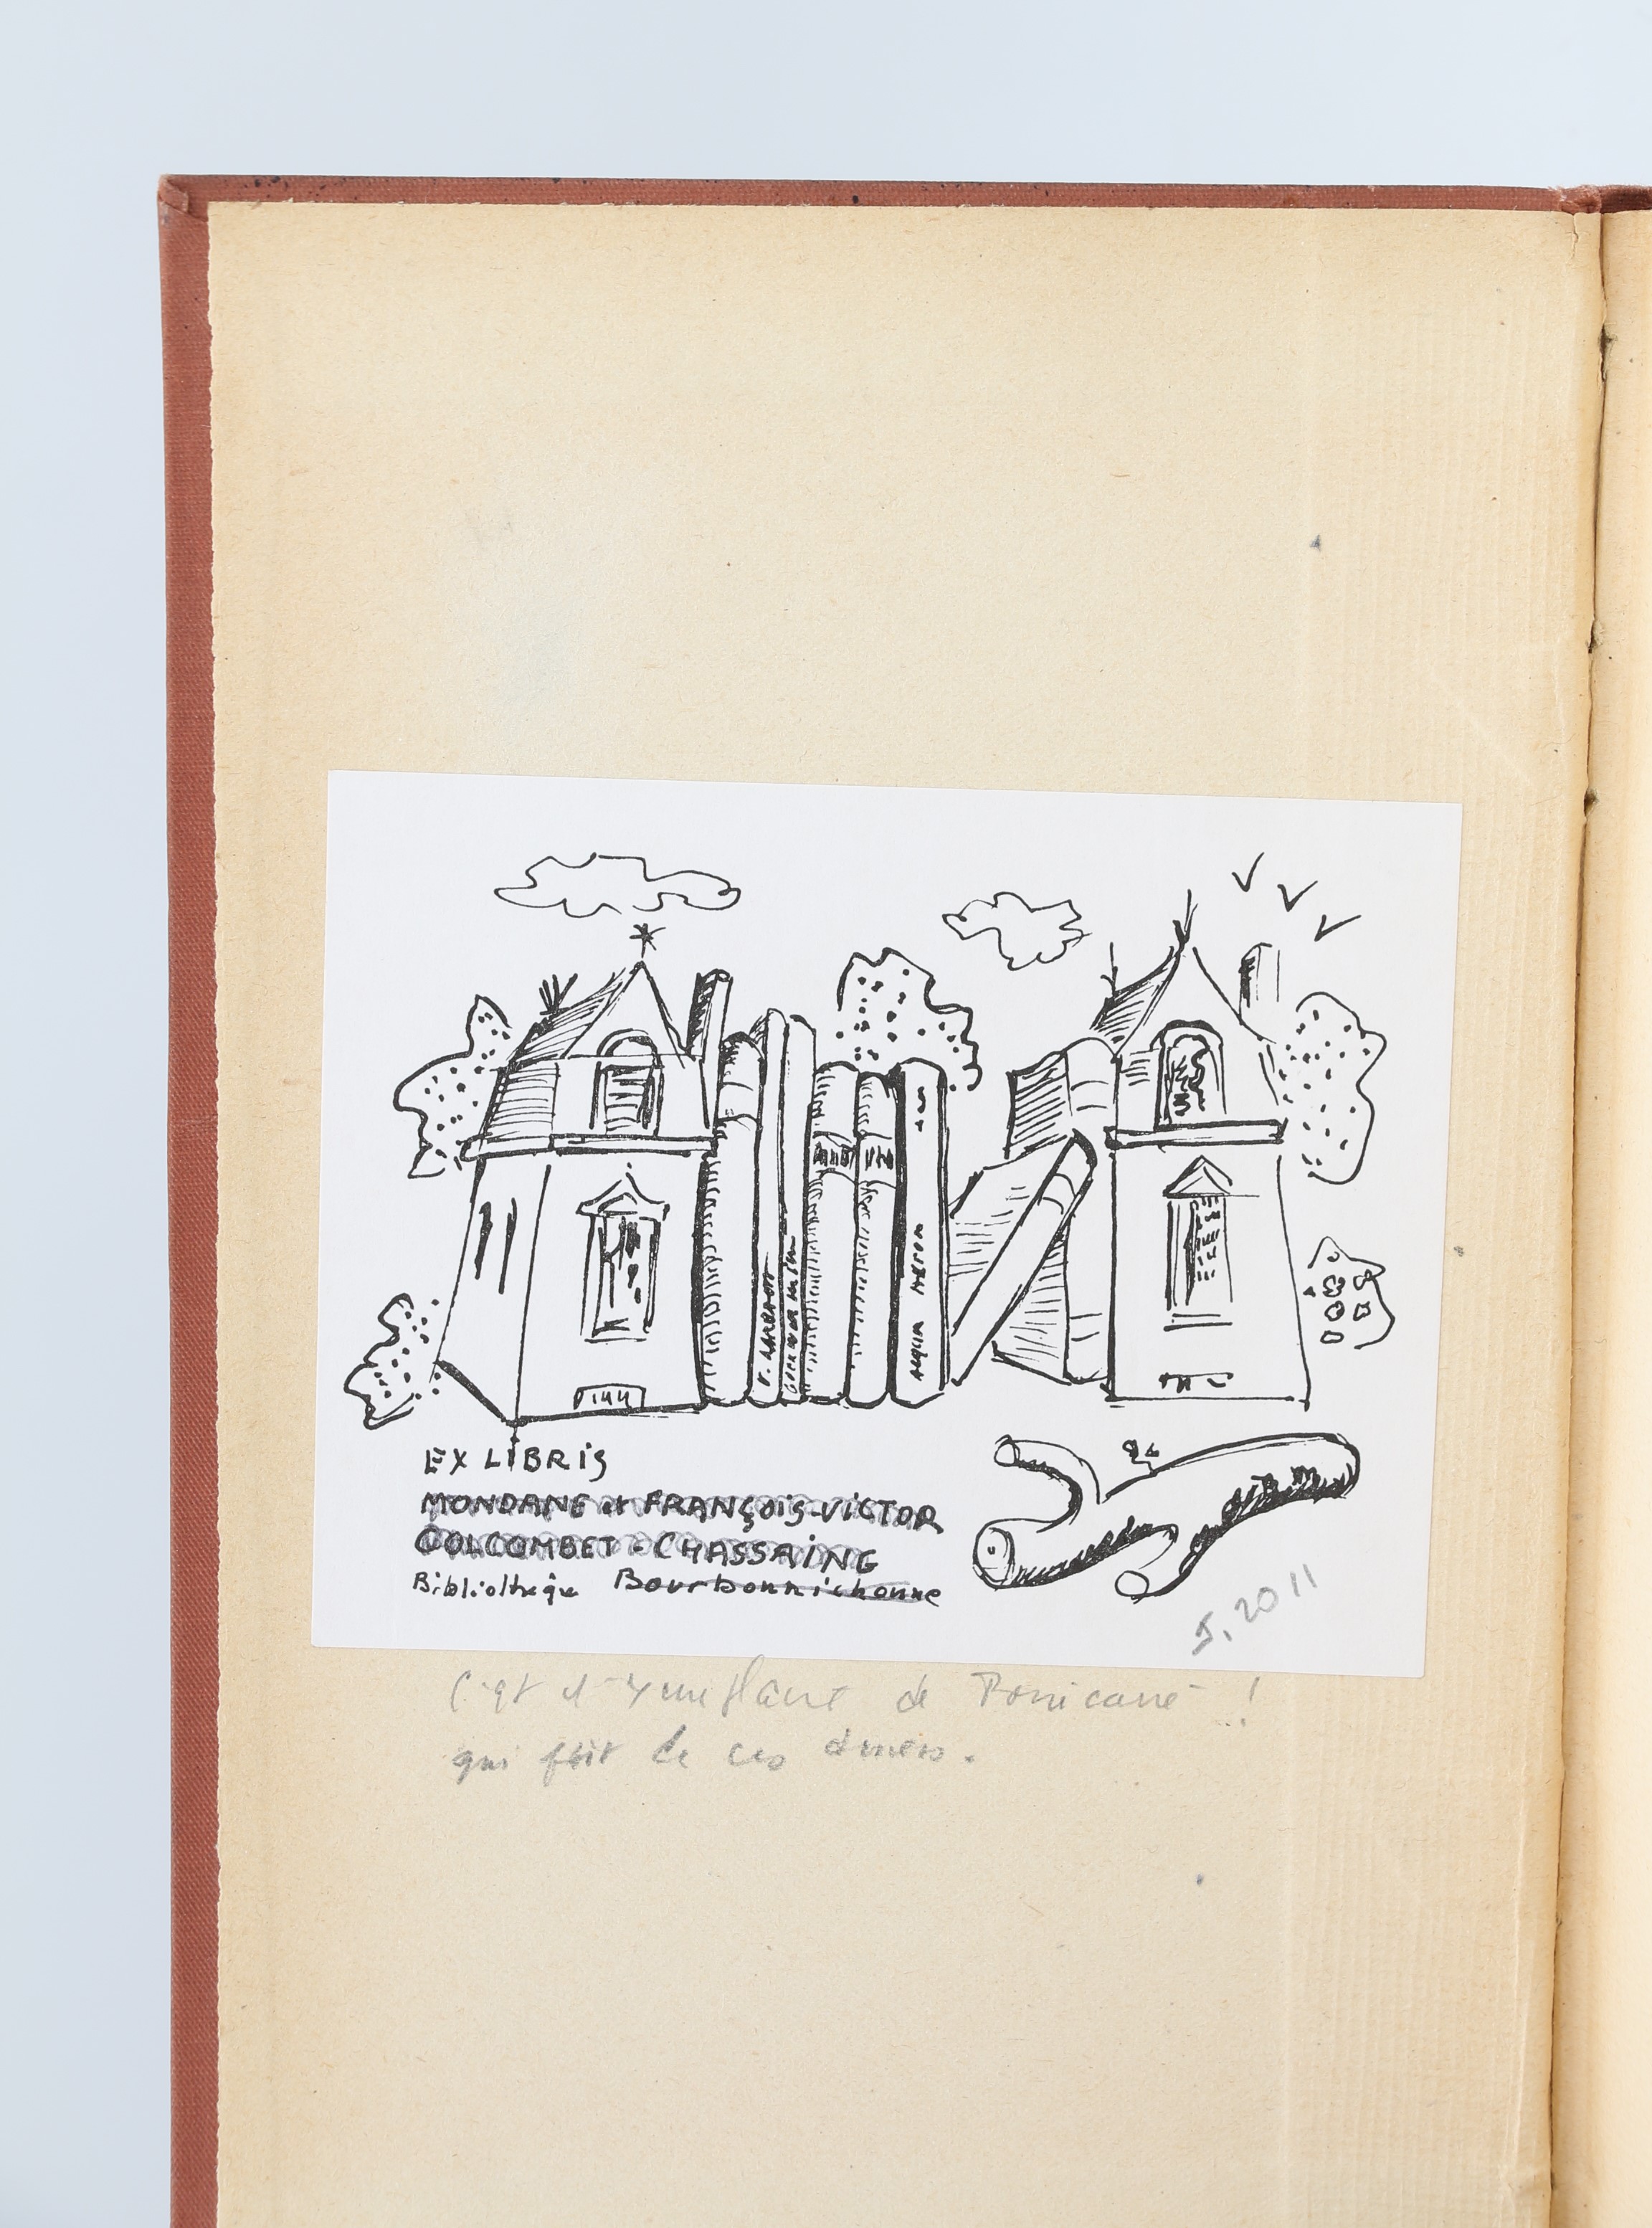 V. LARBAUD
EX LIBRIS
MONDANE et FRANÇOIS-VICTOR
COLCOMBET - CHASSAING
Bibliothèque Bourbonnichonne
5. 2011
C'est l'exemplaire de !
qui fait de ces